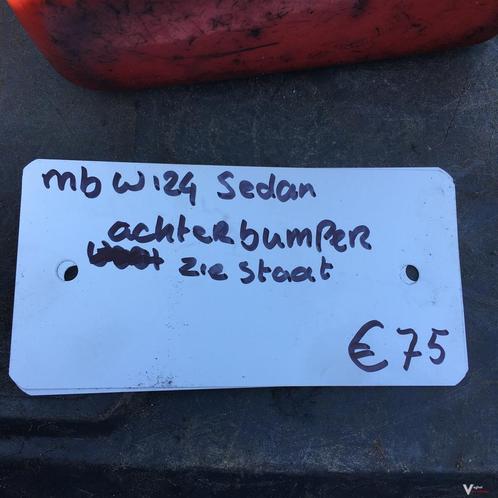 mb W124 Sedan
achterbumper
zie staat
€ 75